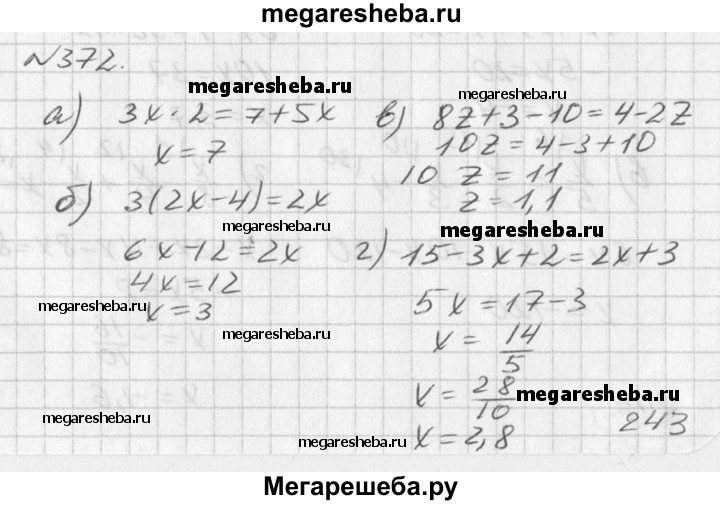 megaresheba.ru
№372.
megaresheba.ru
а) 3x · 2 = 7 + 5x
x = 7
б) 3(2x - 4) = 2x
megaresheba.ru
6x - 12 = 2x
4x = 12
megaresheba.ru
x = 3
megaresheba.ru
megaresheba.ru
megaresheba.ru
в) 8z + 3 - 10 = 4 - 2z
10z = 4 - 3 + 10
10 z = 11
z = 1,1
megaresheba.ru
г) 15 - 3x + 2 = 2x + 3
5x = 17 - 3
x = 14/5
x = 28/10
megaresheba.ru
x = 2,8
megaresheba.ru
243
Мегарешеба.ру